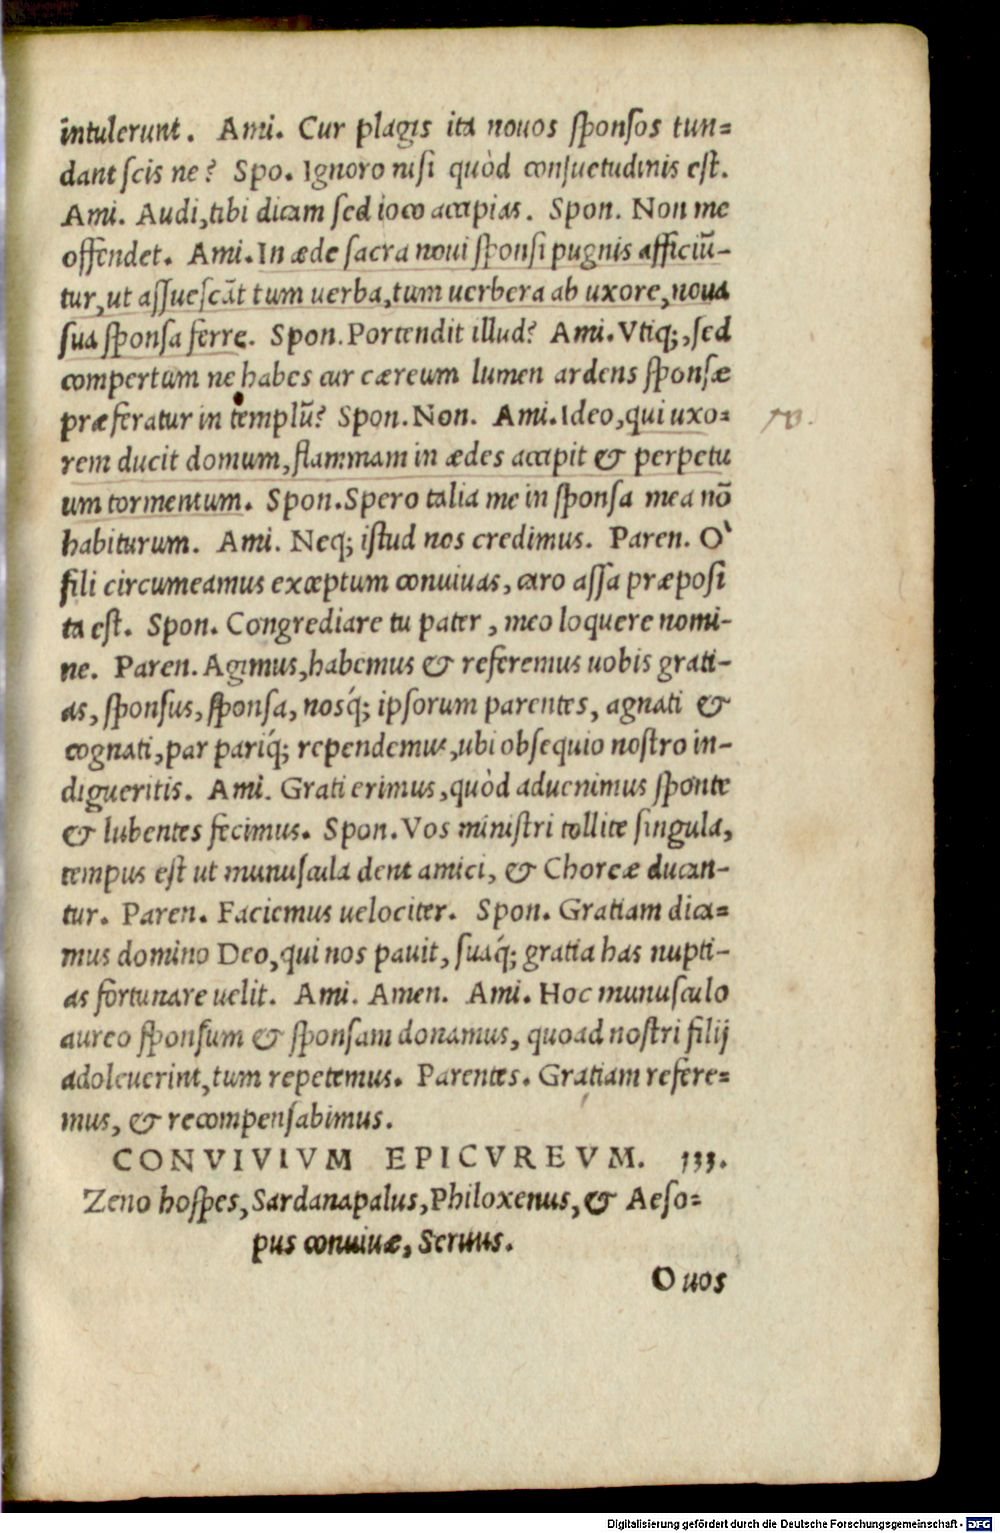 intulerunt. Ami. Cur plagis ita nouos ſponſos tun=
dant ſcis ne? Spo. Ignoro niſi quòd conſuetudinis eſt.
Ami. Audi, tibi dicam ſed ioco accipias. Spon. Non me
offendet. Ami. In æde ſacra noui ſponſi pugnis afficiū-
tur, ut aſſueſcāt tum uerba, tum uerbera ab uxore, noua
ſua ſponſa ferre. Spon. Portendit illud? Ami. Vtiq;, ſed
compertum ne habes cur cæreum lumen ardens ſponſæ
præferatur in templū? Spon. Non. Ami. Ideo, qui uxo=
rem ducit domum, flammam in ædes accipit & perpetu
um tormentum. Spon. Spero talia me in ſponſa mea nō
habiturum. Ami. Neq; iſtud nos credimus. Paren. O`
fili circumeamus exceptum conuiuas, caro aſſa præpoſi
ta eſt. Spon. Congrediare tu pater, meo loquere nomi-
ne. Paren. Agimus, habemus & referemus uobis grati-
as, ſponſus, ſponſa, nosq́; ipſorum parentes, agnati &
cognati, par pariq́; rependemus, ubi obſequio noſtro in-
digueritis. Ami. Grati erimus, quòd aduenimus ſponte
& lubentes fecimus. Spon. Vos miniſtri tollite ſingula,
tempus eſt ut munuſcula dent amici, & Choreæ ducan-
tur. Paren. Faciemus uelociter. Spon. Gratiam dica=
mus domino Deo, qui nos pauit, ſuaq́; gratia has nupti-
as fortunare uelit. Ami. Amen. Ami. Hoc munuſculo
aureo ſponſum & ſponſam donamus, quoad noſtri filij
adoleuerint, tum repetemus. Parentes. Gratiam refere=
mus, & recompenſabimus.
CONVIVIVM EPICVREVM. 333.
Zeno hoſpes, Sardanapalus, Philoxenus, & Aeſo=
pus conuiuæ, Seruus.
O uos
Digitalisierung gefördert durch die Deutsche Forschungsgemeinschaft - DFG